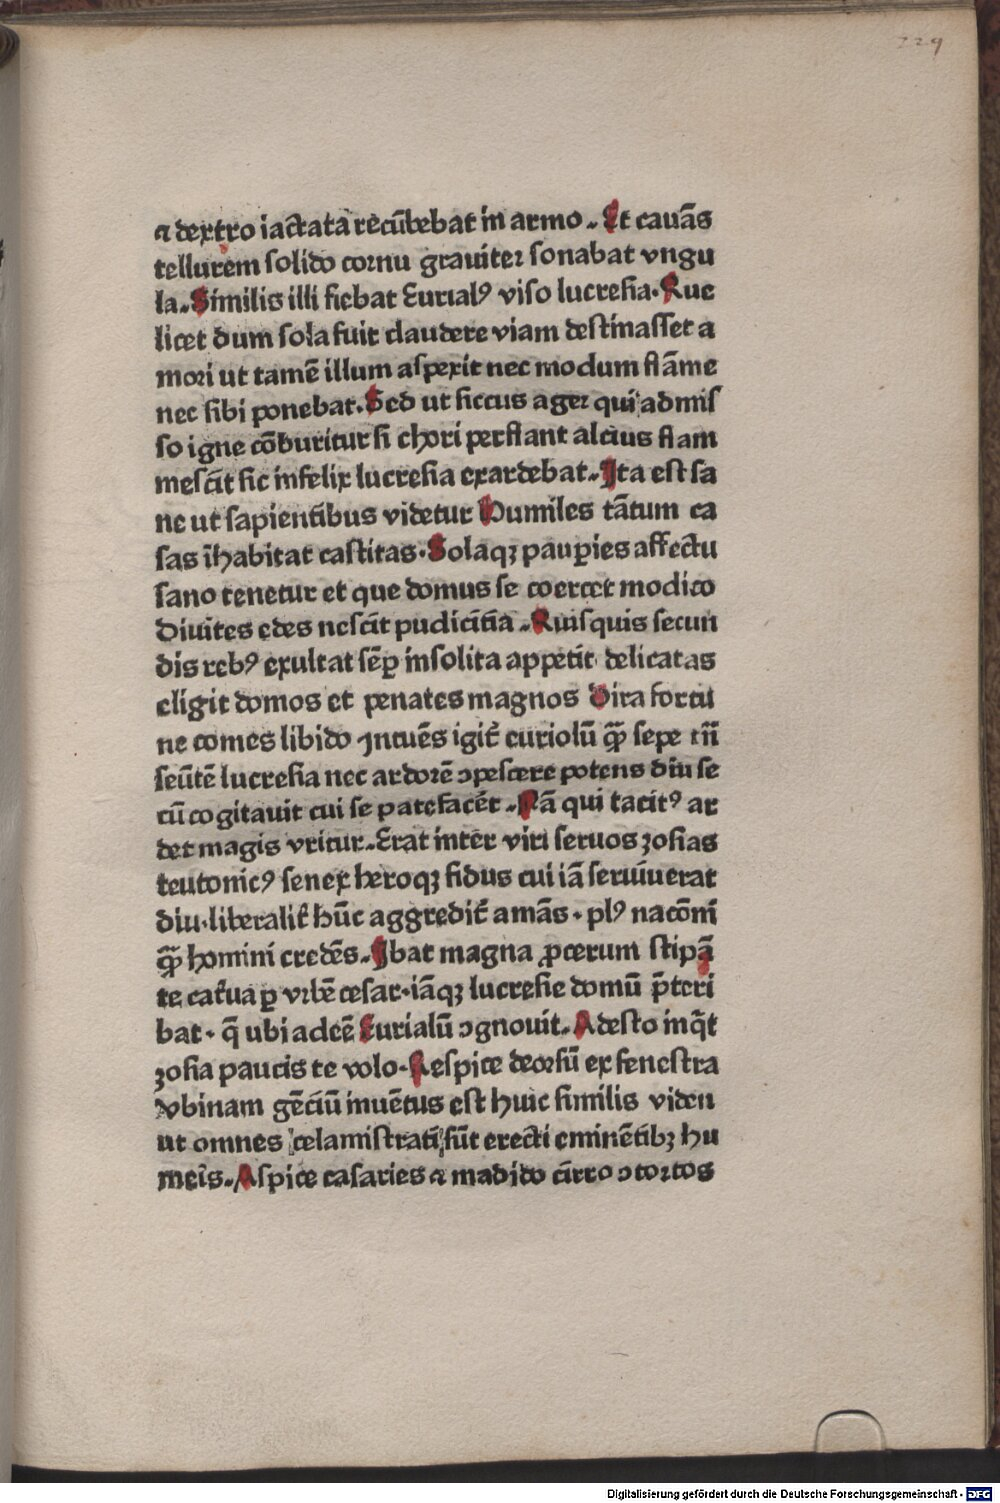 229
⁊ dextro iactata recūbebat in armo. Et cavās
tellurem solido cornu graviter sonabat vngu
la. Similis illi fiebat Eurialꝰ viso lucresia. Que
licet dum sola fuit claudere viam destinasset a
mori ut tamē illum aspexit nec modum flāme
nec sibi ponebat. Sed ut siccus ager qui admis
so igne cōburitur si chori perflant alcius flam
mescīt sic infelix lucresia exardebat. Ita est sa
ne ut sapientibus videtur Humiles tātum ca
sas īhabitat castitas. Solaqꝫ pauꝑies affectu
sano tenetur et que domus se coercet modico
Diuites edes nescīt pudicitia. Quisquis secun
dis rebꝰ exultat sēꝑ insolita appetit delicatas
eligit domos et penates magnos Dira fortu
ne comes libido Intuēs igit̄ euriolū q̄ꝫ sepe trā
seūtē lucresia nec ardorē ↄpescere potens diu se
cū cogitavit cui se patefacēt. Nā qui tacitꝰ ar
det magis vritur. Erat inter viri seruos zosias
teutonicꝰ senex heroqꝫ fidus cui iā seruiuerat
diu liberalit̄ hūc aggredit̄ amās. plꝰ nacōni
q̄ꝫ homini credēs. Ibat magna ꝓcerum stipā
te cat̄ua ꝑ vrbē cesar. iāqꝫ lucresie domū p̄teri
bat. q̄ ubi adeē Eurialū ↄgnouit. Adesto inq̄t
zosia paucis te volo. Respice deorsū ex fenestra
vbinam gēciū iuuētus est huic similis viden
ut omnes celamistrati sūt erecti eminētibꝫ hu
meis. Aspice casaries ⁊ madido cirro ↄtortos
Digitalisierung gefördert durch die Deutsche Forschungsgemeinschaft - DFG